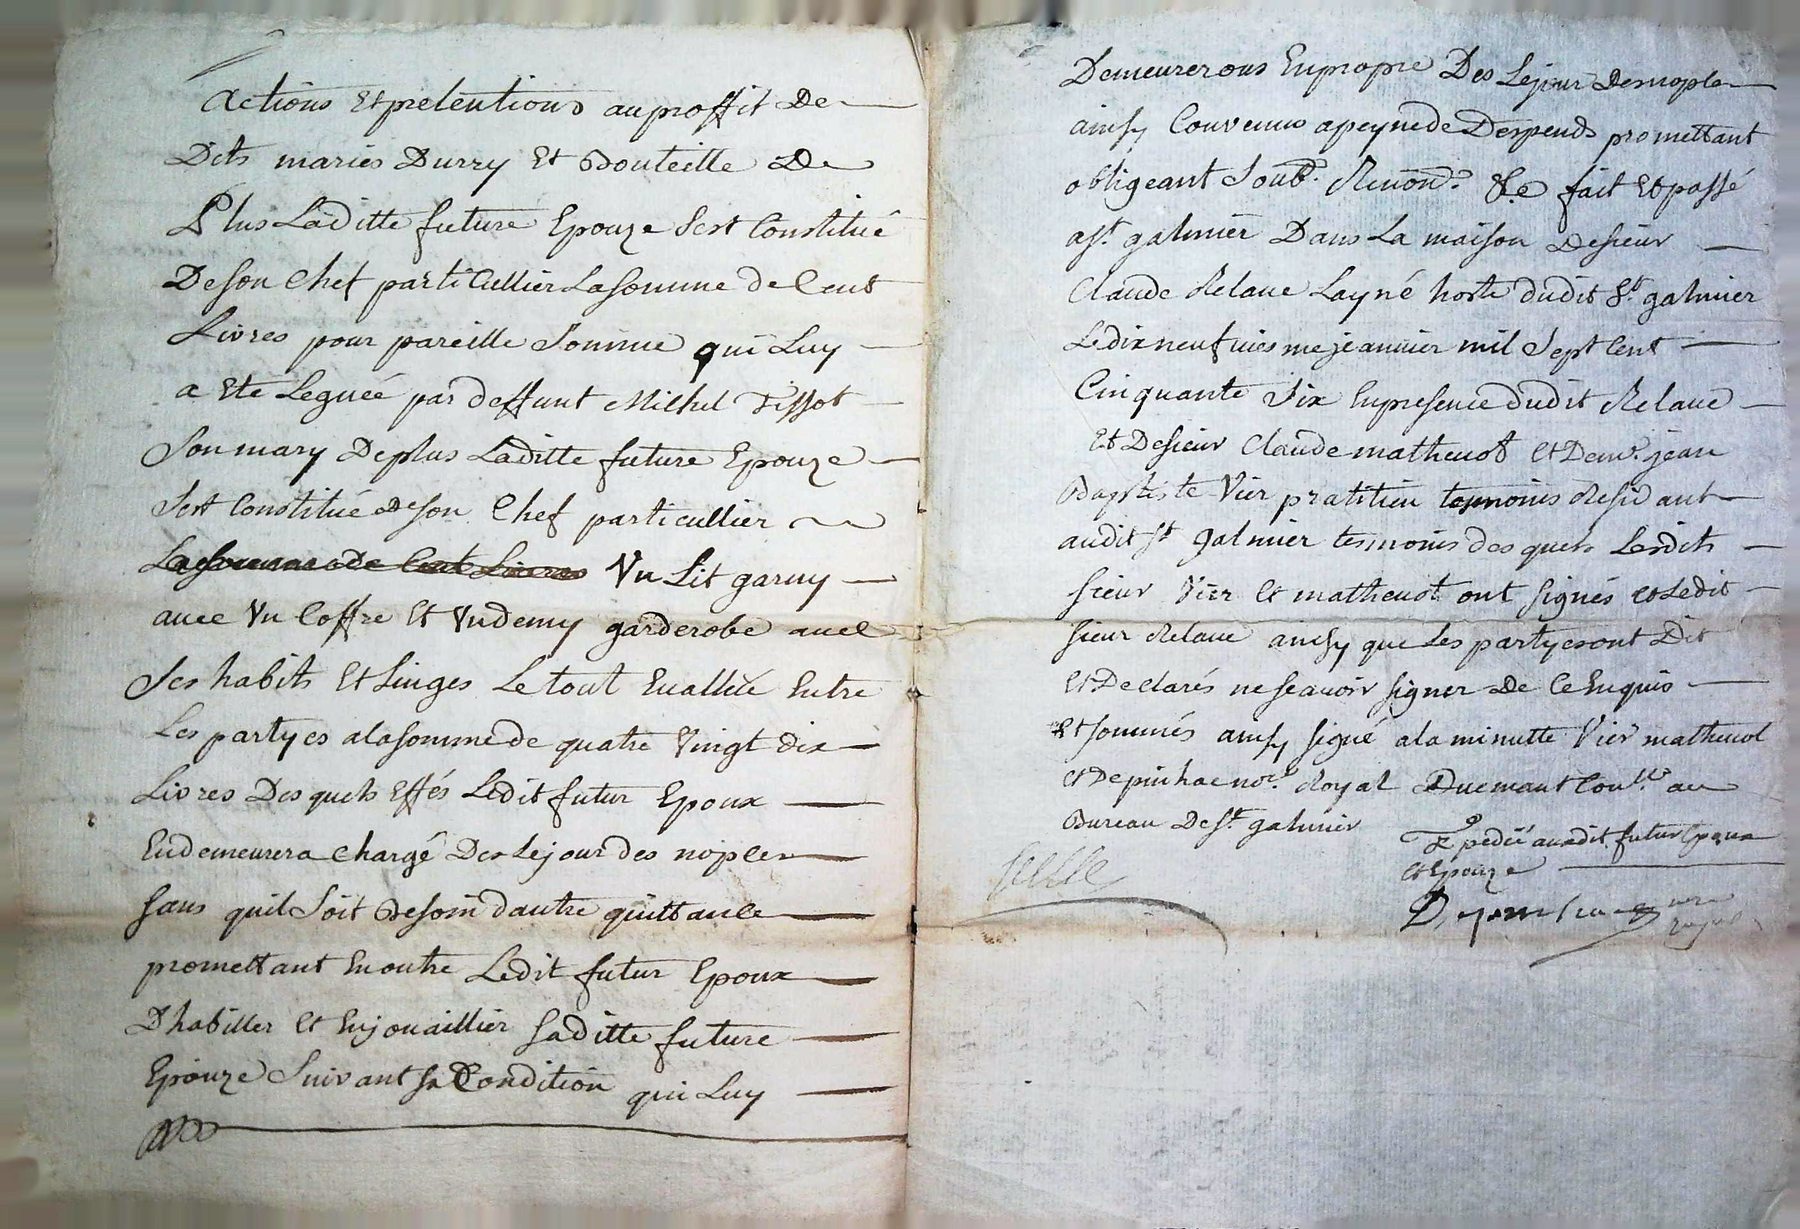 actions Et pretentions au proffit De
Dits mariés Durry Et Bouteille De
Plus Laditte future Epouze sest Constitué
De son chef particullier La somme de Cent
Livres pour pareille somme qui Luy
a Ete Leguée par deffunt Michel Tissot
son mary De plus Laditte future Epouze
sest Constitué de son Chef particullier
La somme de Cent Livres Vn Lit garny
avec Vn Coffre Et Vn demy garderobe avec
ses habits Et Linges Le tout Evallüé Entre
Les partyes a la somme de quatre Vingt dix
Livres Desquels Effés Ledit futur Epoux
En demeurera chargé Des Le jour des nopces
sans quil soit Besoin dautre quittance
promettant En outre Ledit futur Epoux
Dhabiller Et Enjouaillier saditte future
Epouze suivant sa Condition qui Luy
Demeurerons En propre Des Le jour Des nopces
ainsy Convenus a peyne de Despends promettant
obligeant soub.s Renon.s &.e fait Et passé
a st. galmier Dans La maison De sieur
Claude Relave Layné hoste dudit St. galmier
Le dix neufviesme jeanvier mil sept Cent
Cinquante six En presence dudit Relave
Et De sieur Claude mathevot Et De m.e jean
Baptiste Vier pratitien tesmoins Residant
audit st galmier tesmoins desquels Lesdits
sieur Vier Et mathevot ont signés et Ledit
sieur Relave ainsy que Les partyes ont Dit
Et Declarés ne scavoir signer De Ce Enquis
Et sommés ainsy signé a la minutte Vier mathevot
et Depinhac no.re Royal Duemant Con.llé au
Bureau De st. galmier
Expedié ausdit futur Epoux
et Epouze
Depinhac nre
royal